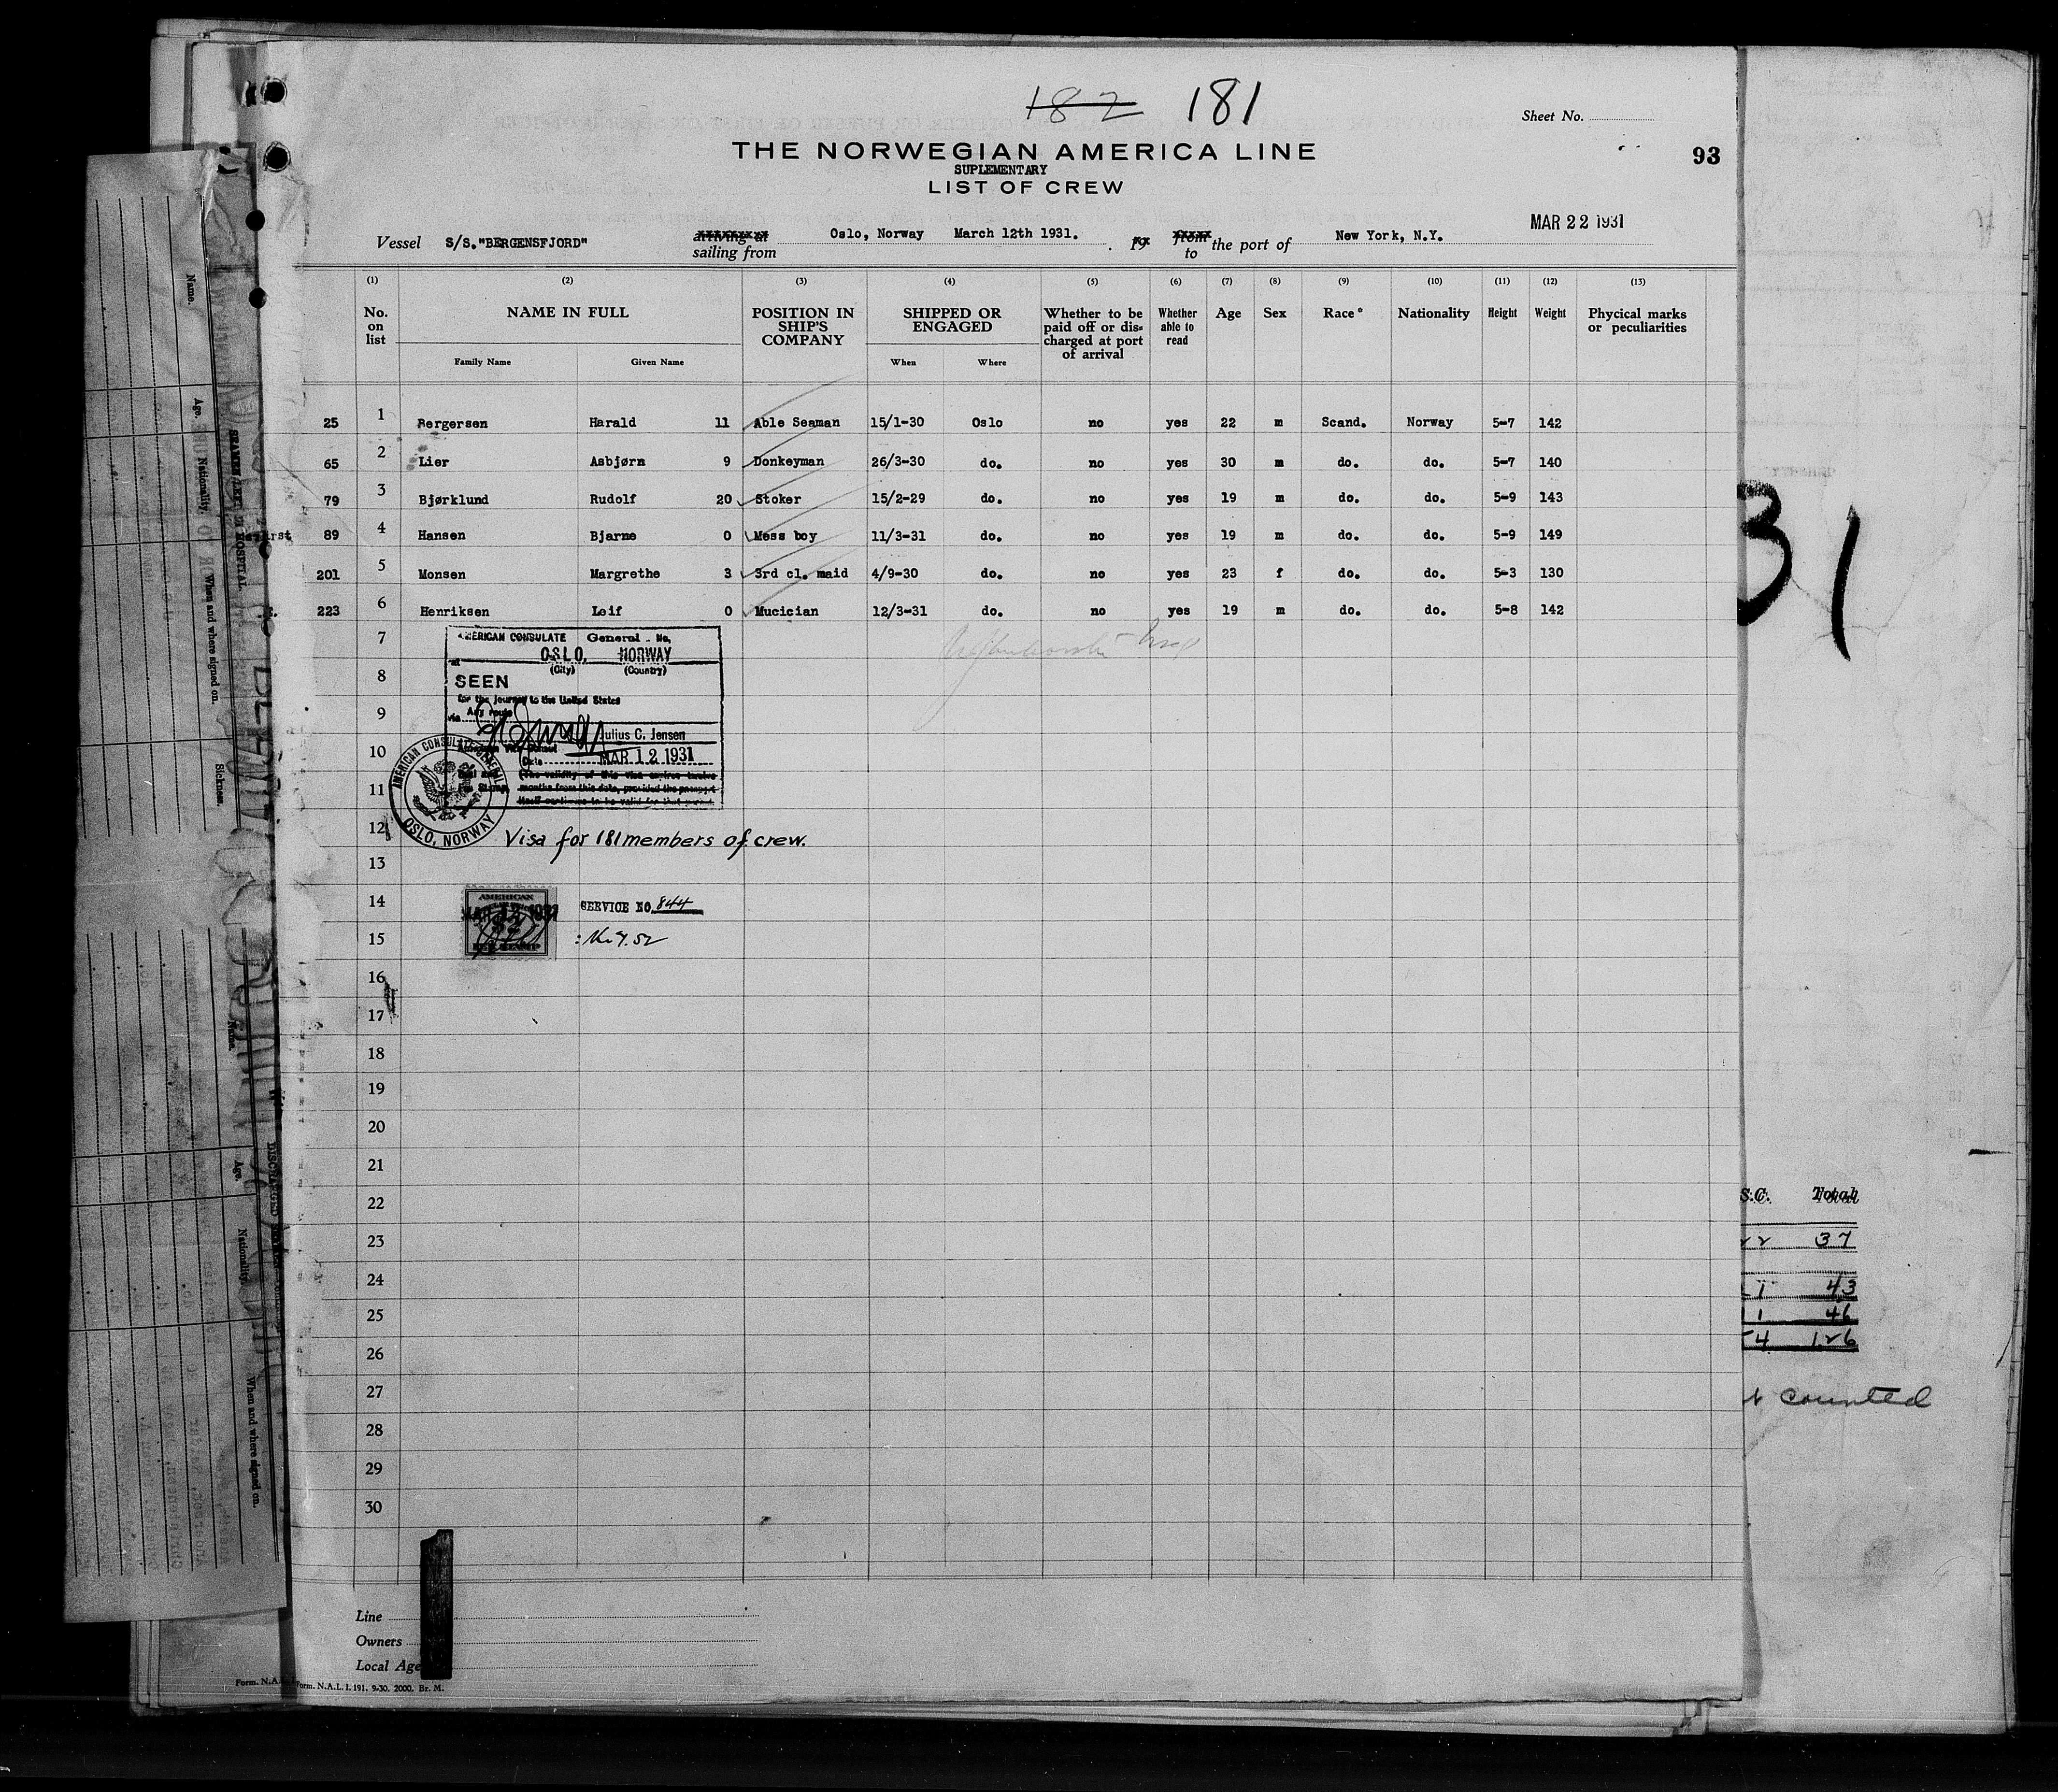 182 181
Sheet No.
THE NORWEGIAN AMERICA LINE
93
SUPLEMENTARY
LIST OF CREW
MAR 22 1931
Vessel S/S."BERGENSFJORD" arriving at Oslo, Norway March 12th 1931. 19 from the port of New York, N.Y.
sailing from to
(1) (2) (3) (4) (5) (6) (7) (8) (9) (10) (11) (12) (13)
No. on list NAME IN FULL POSITION IN SHIP'S COMPANY SHIPPED OR ENGAGED Whether to be paid off or dis-charged at port of arrival Whether able to read Age Sex Race* Nationality Height Weight Phycical marks or peculiarities
Family Name Given Name When Where
25 1 Bergersen Harald 11 Able Seaman 15/1-30 Oslo no yes 22 m Scand. Norway 5-7 142
65 2 Lier Asbjørn 9 Donkeyman 26/3-30 do. no yes 30 m do. do. 5-7 140
79 3 Bjørklund Rudolf 20 Stoker 15/2-29 do. no yes 19 m do. do. 5-9 143
89 4 Hansen Bjarne 0 Mess boy 11/3-31 do. no yes 19 m do. do. 5-9 149
201 5 Monsen Margrethe 3 3rd cl. maid 4/9-30 do. no yes 23 f do. do. 5-3 130
223 6 Henriksen Leif 0 Mucician 12/3-31 do. no yes 19 m do. do. 5-8 142
7
8
9
10
11
12
13
14
15
16
17
18
19
20
21
22
23
24
25
26
27
28
29
30
AMERICAN CONSULATE General - No.
OSLO, NORWAY
(City) (Country)
SEEN
for the journey to the United States
via Any route
Julius C. Jensen
American Vice Consul
Date MAR 12 1931
(The validity of this visa expires twelve
months from this date, provided the passport
itself continues to be valid for that period.
AMERICAN CONSULATE GENERAL
OSLO, NORWAY
Visa for 181 members of crew.
AMERICAN
MAR 12 1931
FEE STAMP
SERVICE NO. 844
Line
Owners
Local Age
Form. N.A.L. I. 191. 9-30. 2000. Br. M.
Name.
Age.
Nationality.
When and where signed on.
Sickness.
Name.
Age.
Nationality.
When and where signed on.
31
S.C. Total
37
43
46
126
counted